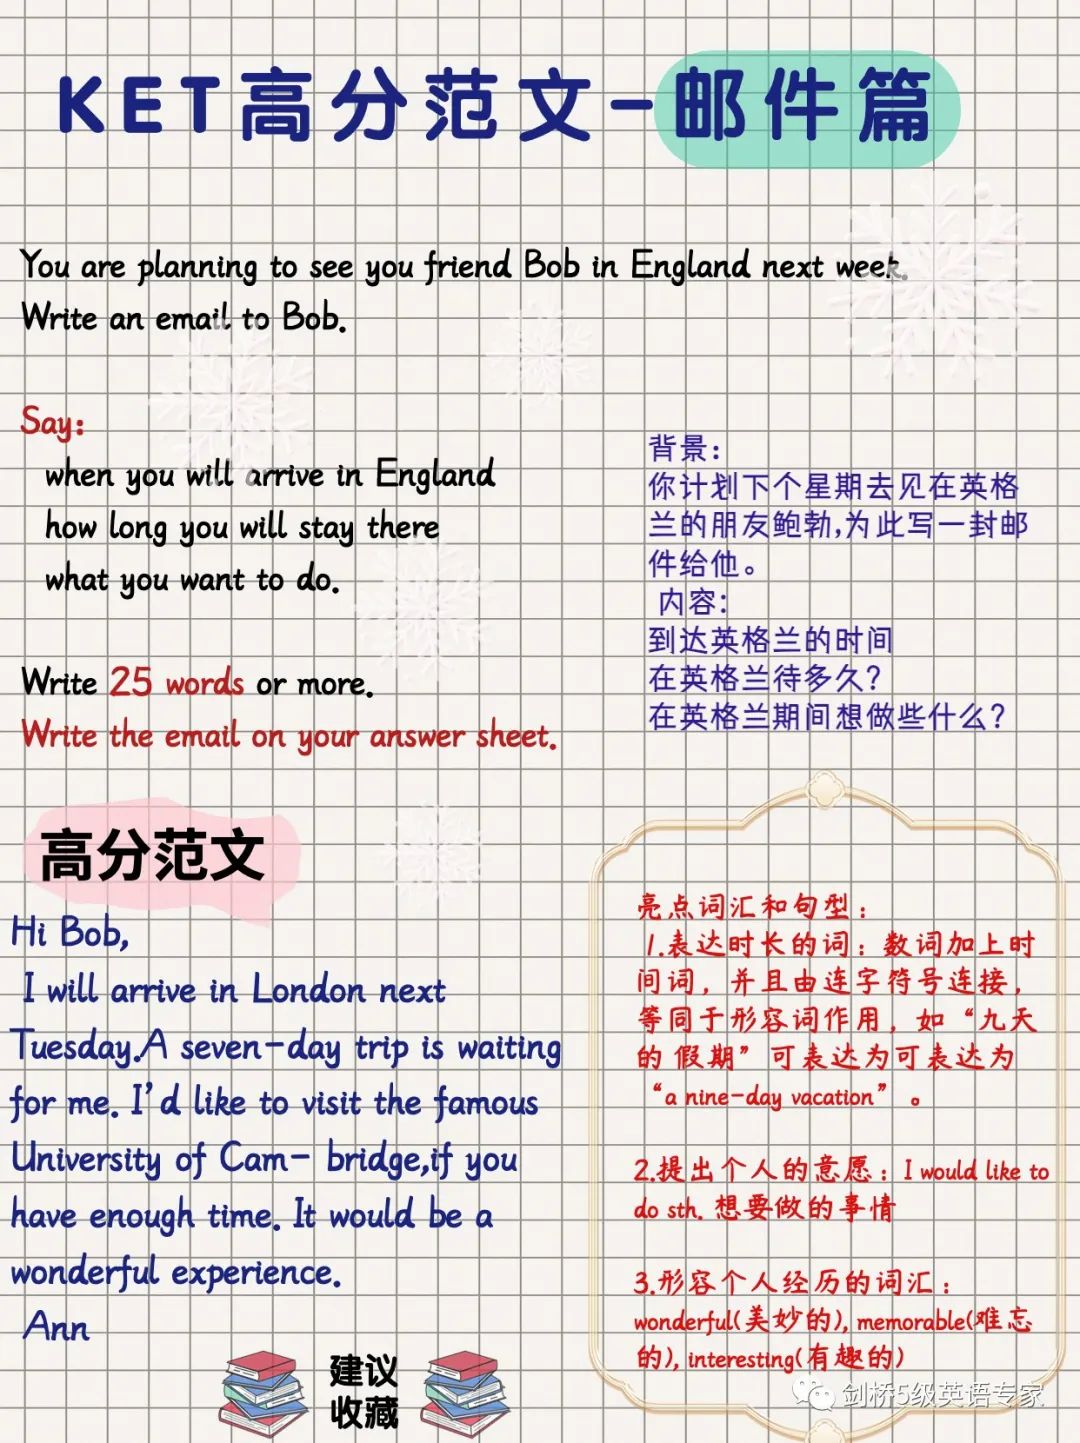 KET高分范文-邮件篇
You are planning to see you friend Bob in England next week.
Write an email to Bob.
Say:
when you will arrive in England
how long you will stay there
what you want to do.
Write 25 words or more.
Write the email on your answer sheet.
背景:
你计划下个星期去见在英格
兰的朋友鲍勃,为此写一封邮
件给他。
内容:
到达英格兰的时间
在英格兰待多久?
在英格兰期间想做些什么?
高分范文
Hi Bob,
I will arrive in London next
Tuesday.A seven-day trip is waiting
for me. I'd like to visit the famous
University of Cam- bridge,if you
have enough time. It would be a
wonderful experience.
Ann
亮点词汇和句型:
1.表达时长的词:数词加上时
间词,并且由连字符号连接,
等同于形容词作用,如“九天
的 假期”可表达为可表达为
“a nine-day vacation” 。
2.提出个人的意愿:I would like to
do sth. 想要做的事情
3.形容个人经历的词汇:
wonderful(美妙的), memorable(难忘
的), interesting(有趣的)
建议
收藏
剑桥5级英语专家